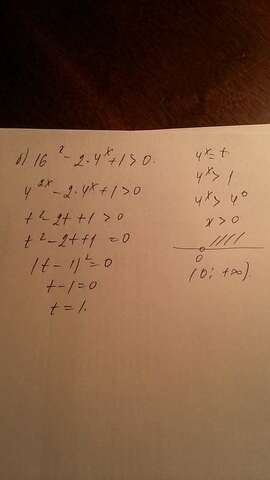 б) 16² - 2·4ˣ + 1 > 0.
4²ˣ - 2·4ˣ + 1 > 0
t² - 2t + 1 > 0
t² - 2t + 1 = 0
(t - 1)² = 0
t - 1 = 0
t = 1.
4ˣ = t
4ˣ > 1
4ˣ > 4⁰
x > 0
0
(0; +∞).